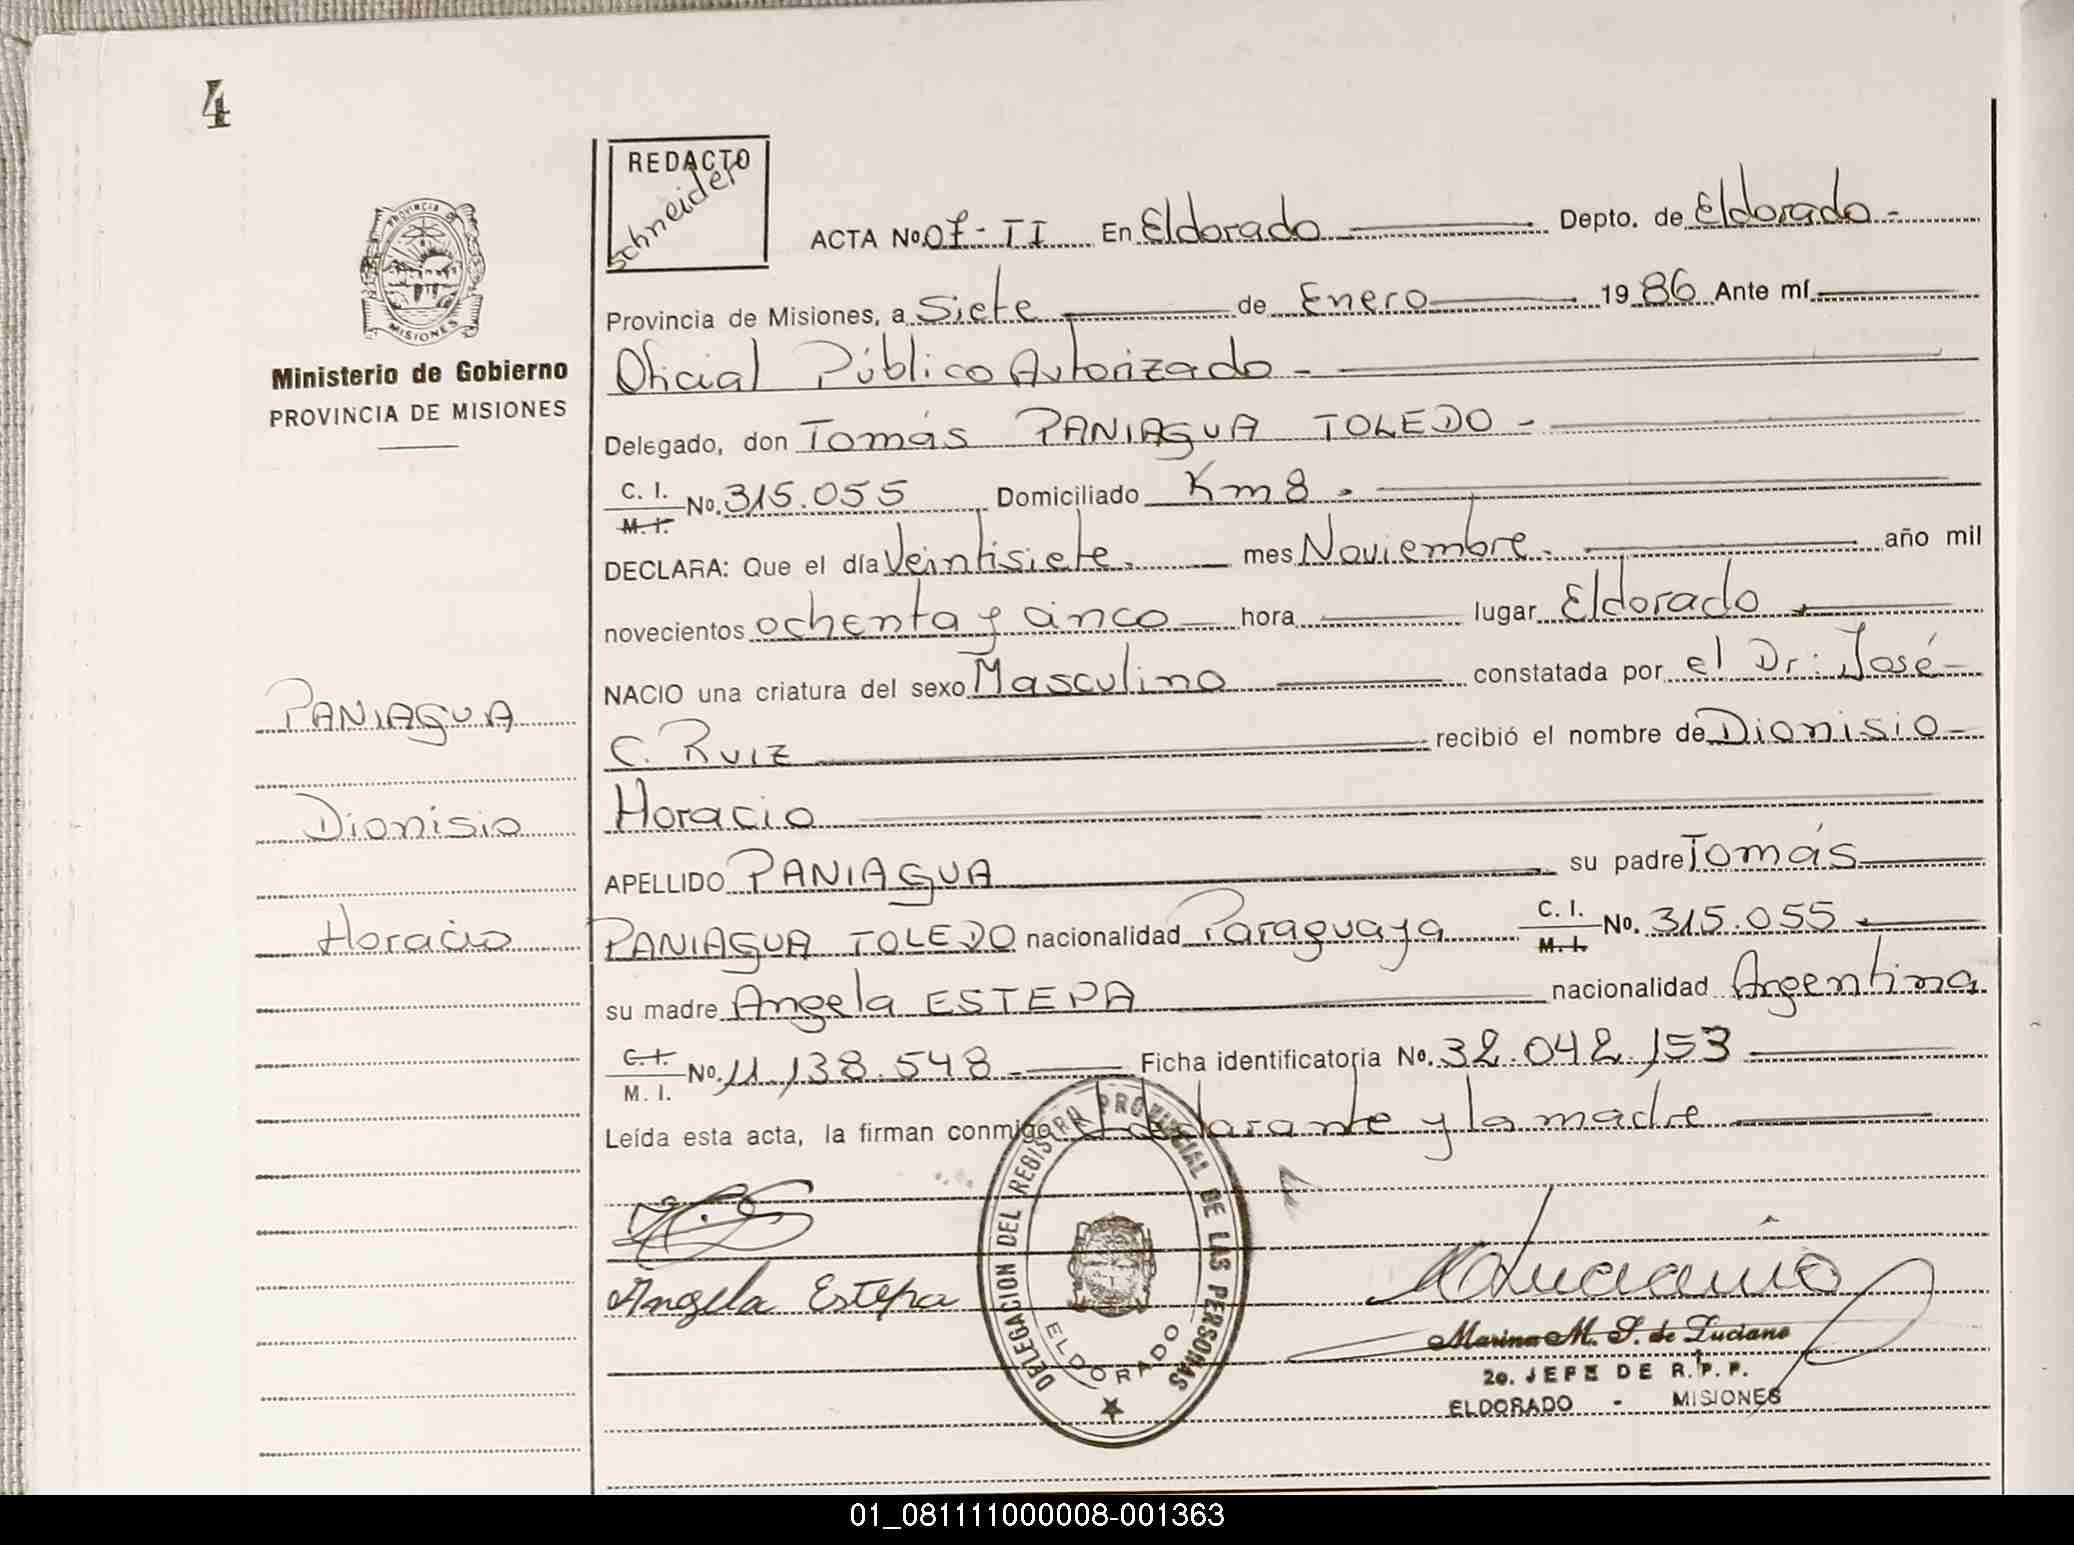 4
REDACTO
Schneider
ACTA No. 07-II En Eldorado Depto. de Eldorado-
Provincia de Misiones, a Siete de Enero 1986 Ante mí
Oficial Público Autorizado -
Delegado, don Tomás PANIAGUA TOLEDO -
C. I. M. I. No. 315.055 Domiciliado Km 8 -
DECLARA: Que el día Veintisiete. mes Noviembre. año mil
novecientos ochenta y cinco hora lugar Eldorado
NACIO una criatura del sexo Masculino constatada por el Dr: José
C. RUIZ recibió el nombre de Dionisio
Horacio
APELLIDO PANIAGUA su padre Tomás
PANIAGUA TOLEDO nacionalidad Paraguaya C. I. M. I. No. 315.055
su madre Angela ESTEPA nacionalidad Argentina
C. I. M. I. No. 11.138.548 - Ficha identificatoria No. 32.042.153
Leída esta acta, la firman conmigo el declarante y la madre
Angela Estepa
DELEGACION DEL REGISTRO PROVINCIAL DE LAS PERSONAS
ELDORADO
Marina M. S. de Luciano
2o. JEFE DE R.P.P.
ELDORADO - MISIONES
PROVINCIA DE
MISIONES
Ministerio de Gobierno
PROVINCIA DE MISIONES
PANIAGUA
Dionisio
Horacio
01_081111000008-001363